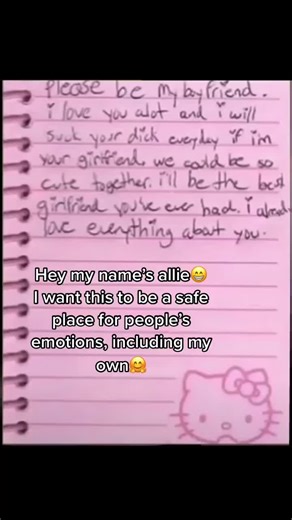 Please be my boyfriend.
i love you alot and i will
suck your dick everyday if im
your girlfriend. we could be so
cute together. i'll be the best
girlfriend you've ever had. i already
love everything about you.
Hey my name's allie😁
I want this to be a safe
place for people's
emotions, including my
own🤗